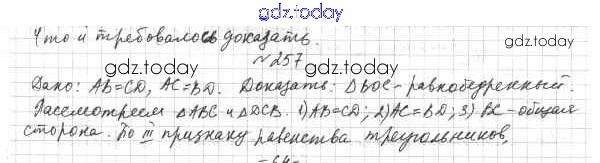 gdz.today
Что и требовалось доказать.
№257
gdz.today gdz.today
Дано: AB=CD, AC=BD. Доказать: ΔBOC - равнобедренный.
Рассмотрим ΔABC и ΔDCB. 1) AB=CD; 2) AC=BD; 3) BC - общая
сторона. По III признаку равенства треугольников,
gdz.today gdz.today
-64-